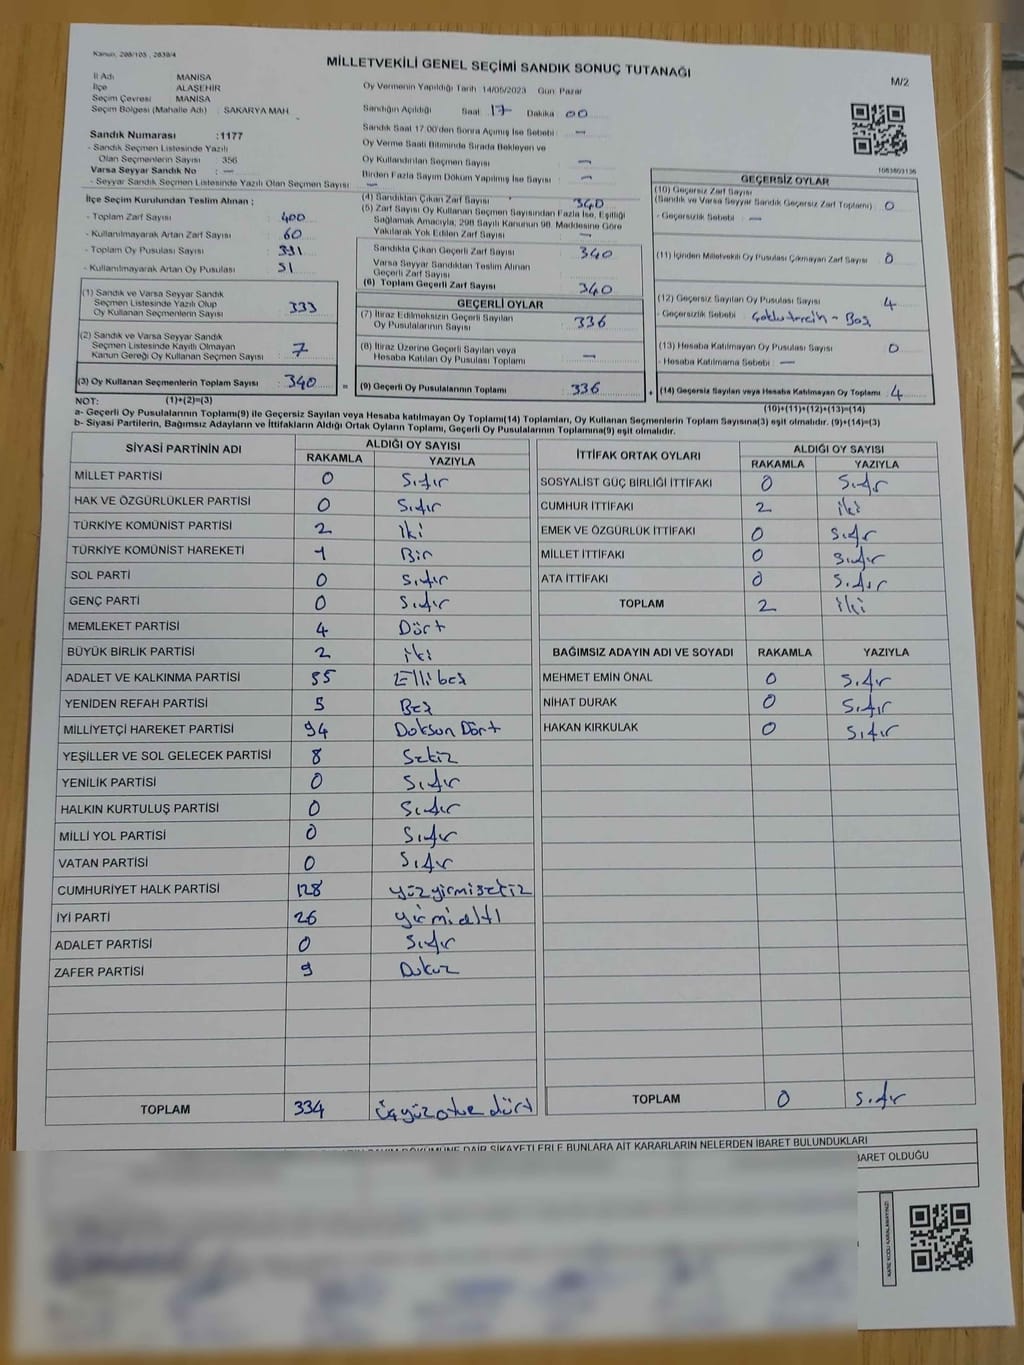 Kanun, 298/105 , 2839/4
MİLLETVEKİLİ GENEL SEÇİMİ SANDIK SONUÇ TUTANAĞI
M/2
İl Adı MANİSA
İlçe ALAŞEHİR
Seçim Çevresi MANİSA
Seçim Bölgesi (Mahalle Adı) : SAKARYA MAH
Sandık Numarası :1177
- Sandık Seçmen Listesinde Yazılı
Olan Seçmenlerin Sayısı : 356
Varsa Seyyar Sandık No : —
- Seyyar Sandık Seçmen Listesinde Yazılı Olan Seçmen Sayısı —
Oy Vermenin Yapıldığı Tarih 14/05/2023 Gün Pazar
Sandığın Açıldığı Saat 17 Dakika 00
Sandık Saat 17.00'den Sonra Açılmış İse Sebebi : —
Oy Verme Saati Bitiminde Sırada Bekleyen ve
Oy Kullandırılan Seçmen Sayısı : —
Birden Fazla Sayım Döküm Yapılmış İse Sayısı : —
1083803136
İlçe Seçim Kurulundan Teslim Alınan :
- Toplam Zarf Sayısı : 400
- Kullanılmayarak Artan Zarf Sayısı : 60
- Toplam Oy Pusulası Sayısı : 391
- Kullanılmayarak Artan Oy Pusulası : 51
(1) Sandık ve Varsa Seyyar Sandık
Seçmen Listesinde Yazılı Olup
Oy Kullanan Seçmenlerin Sayısı : 333
(2) Sandık ve Varsa Seyyar Sandık
Seçmen Listesinde Kayıtlı Olmayan
Kanun Gereği Oy Kullanan Seçmen Sayısı : 7
(3) Oy Kullanan Seçmenlerin Toplam Sayısı : 340 =
(4) Sandıktan Çıkan Zarf Sayısı : 340
(5) Zarf Sayısı Oy Kullanan Seçmen Sayısından Fazla İse, Eşitliği
Sağlamak Amacıyla, 298 Sayılı Kanunun 98. Maddesine Göre
Yakılarak Yok Edilen Zarf Sayısı : —
Sandıkta Çıkan Geçerli Zarf Sayısı : 340
Varsa Seyyar Sandıktan Teslim Alınan
Geçerli Zarf Sayısı :
(6) Toplam Geçerli Zarf Sayısı : 340
GEÇERLİ OYLAR
(7) İtiraz Edilmeksizin Geçerli Sayılan
Oy Pusulalarının Sayısı : 336
(8) İtiraz Üzerine Geçerli Sayılan veya
Hesaba Katılan Oy Pusulası Toplamı : —
(9) Geçerli Oy Pusulalarının Toplamı : 336 +
GEÇERSİZ OYLAR
(10) Geçersiz Zarf Sayısı
(Sandık ve Varsa Seyyar Sandık Geçersiz Zarf Toplamı) : 0
- Geçersizlik Sebebi : —
(11) İçinden Milletvekili Oy Pusulası Çıkmayan Zarf Sayısı : 0
(12) Geçersiz Sayılan Oy Pusulası Sayısı : 4
- Geçersizlik Sebebi : Çoklu tercih - Boş
(13) Hesaba Katılmayan Oy Pusulası Sayısı : 0
- Hesaba Katılmama Sebebi : —
(14) Geçersiz Sayılan veya Hesaba Katılmayan Oy Toplamı : 4
NOT: (1)+(2)=(3)
(10)+(11)+(12)+(13)=(14)
a- Geçerli Oy Pusulalarının Toplamı(9) ile Geçersiz Sayılan veya Hesaba katılmayan Oy Toplamı(14) Toplamları, Oy Kullanan Seçmenlerin Toplam Sayısına(3) eşit olmalıdır. (9)+(14)=(3)
b- Siyasi Partilerin, Bağımsız Adayların ve İttifakların Aldığı Ortak Oyların Toplamı, Geçerli Oy Pusulalarının Toplamına(9) eşit olmalıdır.
SİYASİ PARTİNİN ADI ALDIĞI OY SAYISI
RAKAMLA YAZIYLA
MİLLET PARTİSİ 0 Sıfır
HAK VE ÖZGÜRLÜKLER PARTİSİ 0 Sıfır
TÜRKİYE KOMÜNİST PARTİSİ 2 iki
TÜRKİYE KOMÜNİST HAREKETİ 1 Bir
SOL PARTİ 0 Sıfır
GENÇ PARTİ 0 Sıfır
MEMLEKET PARTİSİ 4 Dört
BÜYÜK BİRLİK PARTİSİ 2 iki
ADALET VE KALKINMA PARTİSİ 55 Ellibeş
YENİDEN REFAH PARTİSİ 5 Beş
MİLLİYETÇİ HAREKET PARTİSİ 94 Doksan Dört
YEŞİLLER VE SOL GELECEK PARTİSİ 8 Sekiz
YENİLİK PARTİSİ 0 Sıfır
HALKIN KURTULUŞ PARTİSİ 0 Sıfır
MİLLİ YOL PARTİSİ 0 Sıfır
VATAN PARTİSİ 0 Sıfır
CUMHURİYET HALK PARTİSİ 128 yüzyirmisekiz
İYİ PARTİ 26 yirmialtı
ADALET PARTİSİ 0 Sıfır
ZAFER PARTİSİ 9 Dokuz
TOPLAM 334 üçyüzotuzdört
İTTİFAK ORTAK OYLARI ALDIĞI OY SAYISI
RAKAMLA YAZIYLA
SOSYALİST GÜÇ BİRLİĞİ İTTİFAKI 0 Sıfır
CUMHUR İTTİFAKI 2 iki
EMEK VE ÖZGÜRLÜK İTTİFAKI 0 Sıfır
MİLLET İTTİFAKI 0 Sıfır
ATA İTTİFAKI 0 Sıfır
TOPLAM 2 iki
BAĞIMSIZ ADAYIN ADI VE SOYADI RAKAMLA YAZIYLA
MEHMET EMİN ÖNAL 0 Sıfır
NİHAT DURAK 0 Sıfır
HAKAN KIRKULAK 0 Sıfır
TOPLAM 0 Sıfır
DÖKÜMÜNE DAİR ŞİKAYETLERLE BUNLARA AİT KARARLARIN NELERDEN İBARET BULUNDUKLARI
BARET OLDUĞU
KARE KODU KARALAMAYINIZ!